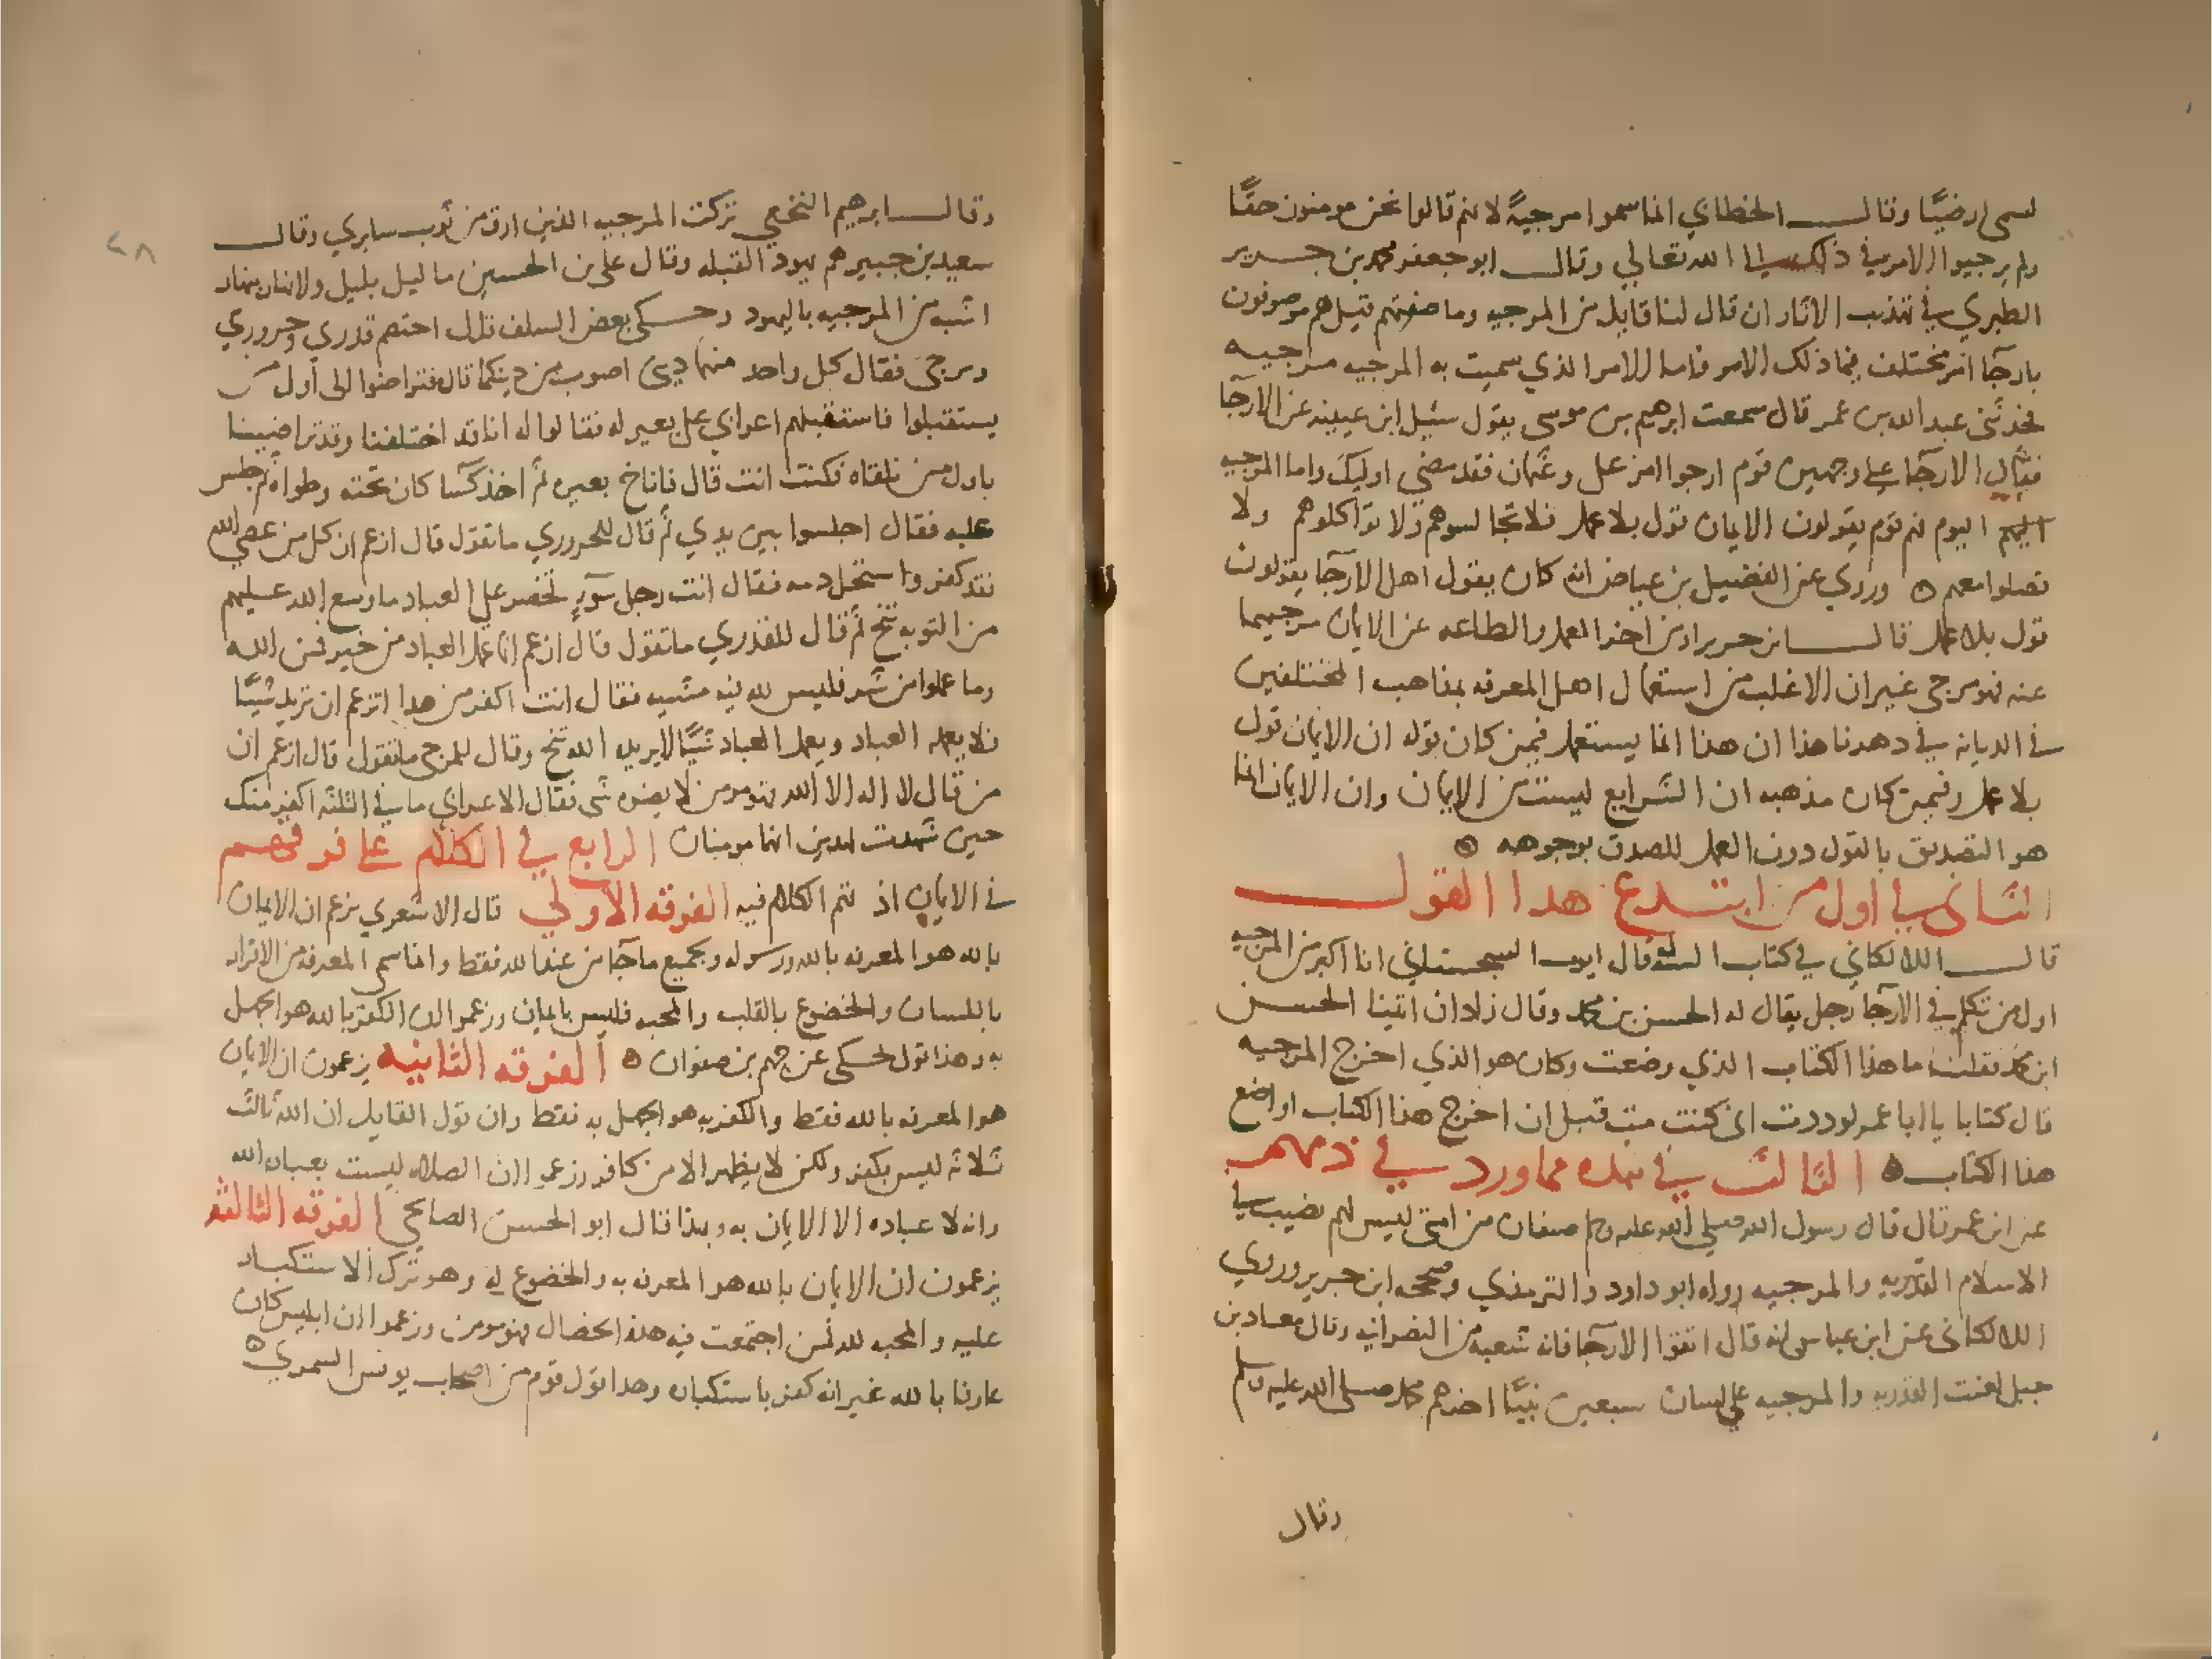 لسمى ارضيًا وقال الخطابي انما سموا مرجيةً لانهم قالوا نحن مومنون حقًا
ولم يرجيوا الامر في ذلك الى الله تعالي وقال ابو جعفر محمد بن جرير
الطبري في تهذيب الاثار ان قال لنا قايل من المرجيه وما صفتهم قيل هم موصوفون
بارجآ امر مختلف فيما ذلك الامر فاما الامر الذي سميت به المرجيه مرجيه
فحدثني عبد الله بن عمر قال سمعت ابرهيم بن موسى يقول سئيل ابن عيينه عن الارجآ
فقال الارجآ علي وجهين قوم ارجوا امر علي وعثمان فقد مضي اوليك واما المرجيه
اليوم فهم قوم يقولون الايمان قول بلا عمل فلا تجالسوهم ولا تواكلوهم ولا
تصلوا معهم ه وروي عن الفضيل بن عياض انه كان يقول اهل الارجآ يقولون
قول بلا عمل قال ابن جرير اذ من اخر العمل والطاعه عن الايمان مرجيهما
عنه فهو مرجى غير ان الاغلب من استعمال اهل المعرفه بمذاهب المختلفين
في الديانه في دهرنا هذا ان هذا انما يستعمل فيمن كان قوله ان الايمان قول
بلا عمل وفيمن كان مذهبه ان الشرايع ليست من الايمان وان الايمان انما
هو التصديق بالقول دون العمل المصدق بوجوهه ه
الثاني في اول من ابتدع هدا القول
قال اللالكائي في كتاب السنه قال ايوب السجستاني انا اكبر من المرجيه
اول من تكلم في الارجآ رجل يقال له الحسن بن محمد وقال زاذان اتينا الحسن
ابن محمد فقلنا ما هذا الكتاب الذي وضعت وكان هو الذي اخرج المرجيه
قال كتابا يا ابا عمر لوددت اني كنت مت قبل ان اخرج هذا الكتاب او اضع
هذا الكتاب ه الثالث في نبذه مما ورد في ذمهم
عن ابن عمر قال قال رسول الله صلي الله عليه وسلم صنفان من امتى ليس لهم نصيب في
الاسلام القدريه والمرجيه رواه ابو داود والترمذي وصححه ابن جرير وروي
اللالكائى عن ابن عباس انه قال اتقوا الارجآ فانه شعبه من النصرانيه وقال معاد بن
جبل لعنت القدريه والمرجيه علي لسان سبعين نبيًا اخرهم محمد صلى الله عليه وسلم
وقال
٢٨
وقال ابرهيم النخعي تركت المرجيه الدين ارق من ثوب سابري وقال
سعيد بن جبير هم يهود القبله وقال علي بن الحسين ما ليل بليل ولا نهار بنهار
اشبه من المرجيه باليهود وحكى بعض السلف قال اختصم قدري وحروري
ومرجى فقال كل واحد منهما ديني اصوب من دينكما قال فتراضوا الى اول من
يستقبلوا فاستقبلهم اعرابي علي بعير له فقالوا له انا قد اختلفنا وقد تراضينا
باول من نلقاه فكنت انت قال فاناخ بعيره ثم اخذ كسآ كان تحته وطواه ثم جلس
عليه فقال اجلسوا بين يدي ثم قال للحروري ما تقول قال ازعم ان كل من عصى الله
فقد كفر واستحل دمه فقال انت رجل سوء تحضر علي العباد ما وسع الله عليهم
من التوبه تنح ثم قال للقدري ما تقول قال ازعم ان ما عمل العباد من خير فمن الله
وما عملوا من شر فليس لله فيه مشيه فقال انت اكفر من هدا اتزعم ان يريد شيًا
فلا يعمله العباد ويعمل العباد شيًا لا يريده الله تنح وقال للمرجى ما تقول قال ازعم ان
من قال لا اله الا الله فهو مومن لا يضره شي فقال الاعرابي ما في الثلثه اكفر منك
حين شهدت لهدين انهما مومنان الرابع في الكلام علي فرقهم
في الايمان اذ تم الكلام فيه الفرقه الاولي قال الاشعري يزعم ان الايمان
بالله هو المعرفه بالله ورسوله وبجميع ما جآ من عند الله فقط وان ما سوى المعرفه من الاقرار
باللسان والخضوع بالقلب والمحبه فليس بايمان وزعموا ان الكفر بالله هو الجهل
به وهذا قول يحكى عن جهم بن صفوان ه الفرقه الثانيه يزعمون ان الايمان
هو المعرفه بالله فقط والكفر به هو الجهل به فقط وان قول القايل ان الله ثالث
ثلاثه ليس بكفر ولكن لا يظهر الا من كافر وزعموا ان الصلاه ليست بعباده الله
وانه لا عباده الا الايمان به وبهذا قال ابو الحسين الصالحي الفرقه الثالثه
يزعمون ان الايمان بالله هو المعرفه به والخضوع له وهو ترك الاستكبار
عليه والمحبه لله فمن اجتمعت فيه هذه الخصال فهو مومن وزعموا ان ابليس كان
عارفا بالله غير انه كفر باستكباره وهدا قول قوم من اصحاب يونس السمري ه